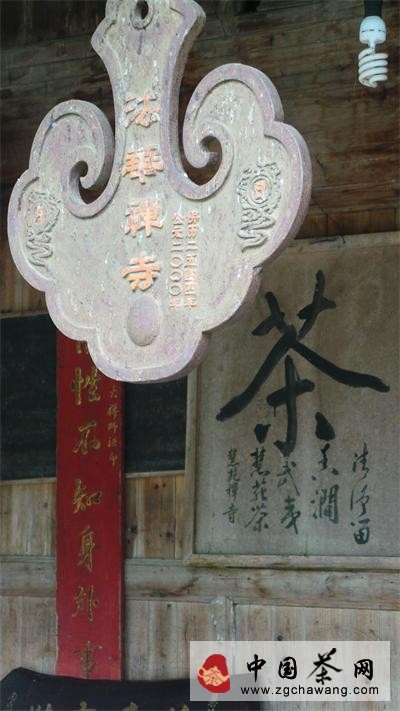 法華禪寺
佛历二五四四年
公元二〇〇〇年
日
月
茶
香澗
武夷
慧苑茶
慧苑禪寺
性不知身外事
中国茶网
www.zgchawang.com